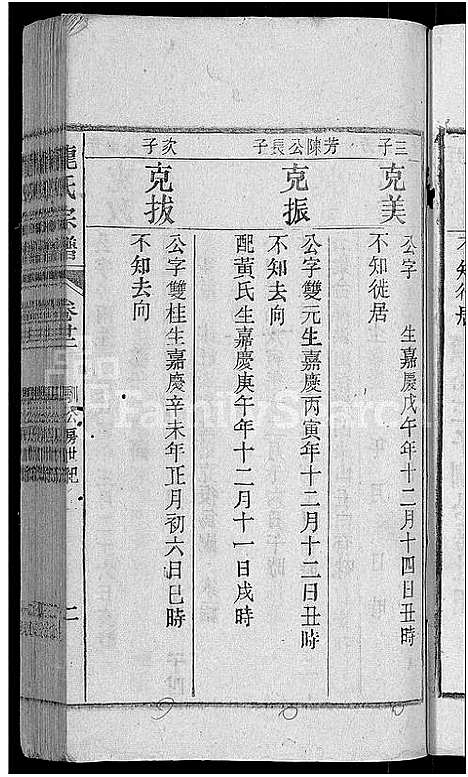 三子
克美
公字 生嘉慶戊午年十二月十四日丑時
不知徙居
芳陳公長子
克振
公字雙元生嘉慶丙寅年十二月十二日丑時
不知去向
配黃氏生嘉慶庚午年十二月十一日戌時
次子
克拔
公字雙桂生嘉慶辛未年正月初六日巳時
不知去向
龍氏宗譜
卷廿二
公房世紀
二
不知徙居
FamilySearch